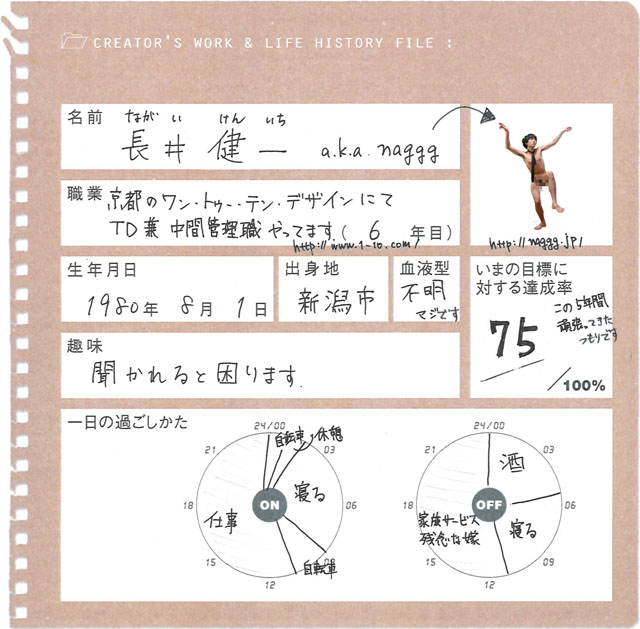 CREATOR'S WORK & LIFE HISTORY FILE :
名前
ながい けんいち
長井 健一 a.k.a. naggg
http://naggg.jp/
職業
京都のワン・トゥー・テン・デザインにて
TD兼 中間管理職 やってます。( 6 年目)
http://www.1-10.com/
生年月日
1980年 8月 1日
出身地
新潟市
血液型
不明
マジです
いまの目標に
対する達成率
75
この5年間
頑張ってきた
つもりです
/100%
趣味
聞かれると困ります。
一日の過ごしかた
24/00
03
06
09
12
15
18
21
ON
自転車・休憩
寝る
自転車
仕事
24/00
03
06
09
12
15
18
21
OFF
酒
寝る
家族サービス
残念な嫁